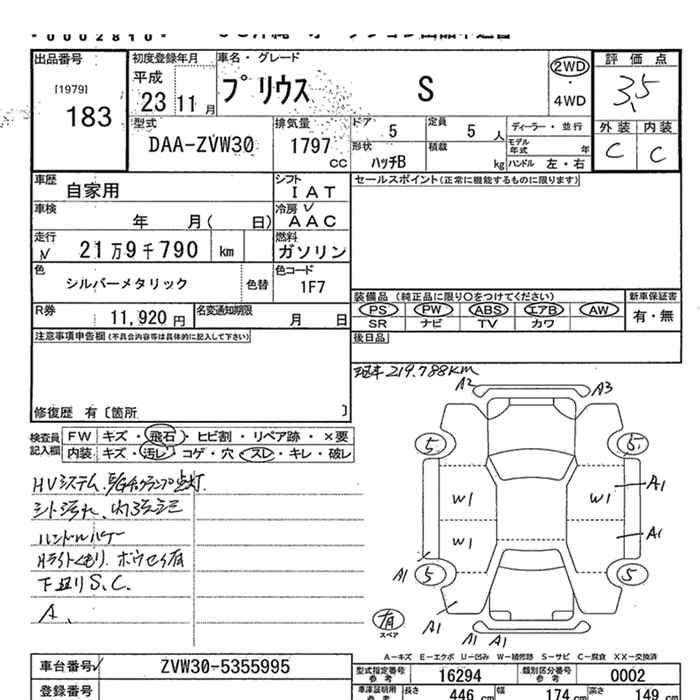 0002810
出品番号
[1979]
183
初度登録年月
平成
23 11 月
車名・グレード
プリウス S
2WD
・
4WD
評価点
3.5
外装 内装
C C
型式
DAA-ZVW30
排気量
1797 CC
ドア 5
定員 5 人
形状 ハッチB
積載 kg
ディーラー・並行
モデル年式 年
ハンドル 左・右
車歴 自家用
シフト IAT
セールスポイント(正常に機能するものに限ります)
車検 年 月( 日)
冷房 AAC
走行 21万9千790 km
燃料 ガソリン
色 シルバーメタリック 色替
色コード 1F7
装備品 (純正品に限り○をつけてください)
新車保証書
PS PW ABS エアB AW
有・無
SR ナビ TV カワ
R券 11,920 円
名変通知期限 月 日
後日品
注意事項申告欄(不具合内容等は具体的に記入して下さい)
修復歴 有〔箇所 〕
現車 219.788km
検査員記入欄
FW キズ・飛石・ヒビ割・リペア跡・×要
内装 キズ・汚レ・コゲ・穴・スレ・キレ・破レ
HVシステム、E/Gチェックランプ点灯
シート汚れ、
ハンドル
ライトくもり、
下廻りS.C.
A.
A2 A3
5 5
W1 W1 A1
W1 A1
A1 5 5
A1 A1 A1
有
スペア
A-キズ E-エクボ U-凹み W-補修跡 S-サビ C-腐食 XX-交換済
車台番号 ZVW30-5355995
型式指定番号 参考 16294
類別区分番号 参考 0002
登録番号
車庫証明用 参考 長さ 446 cm 幅 174 cm 高さ 149 cm